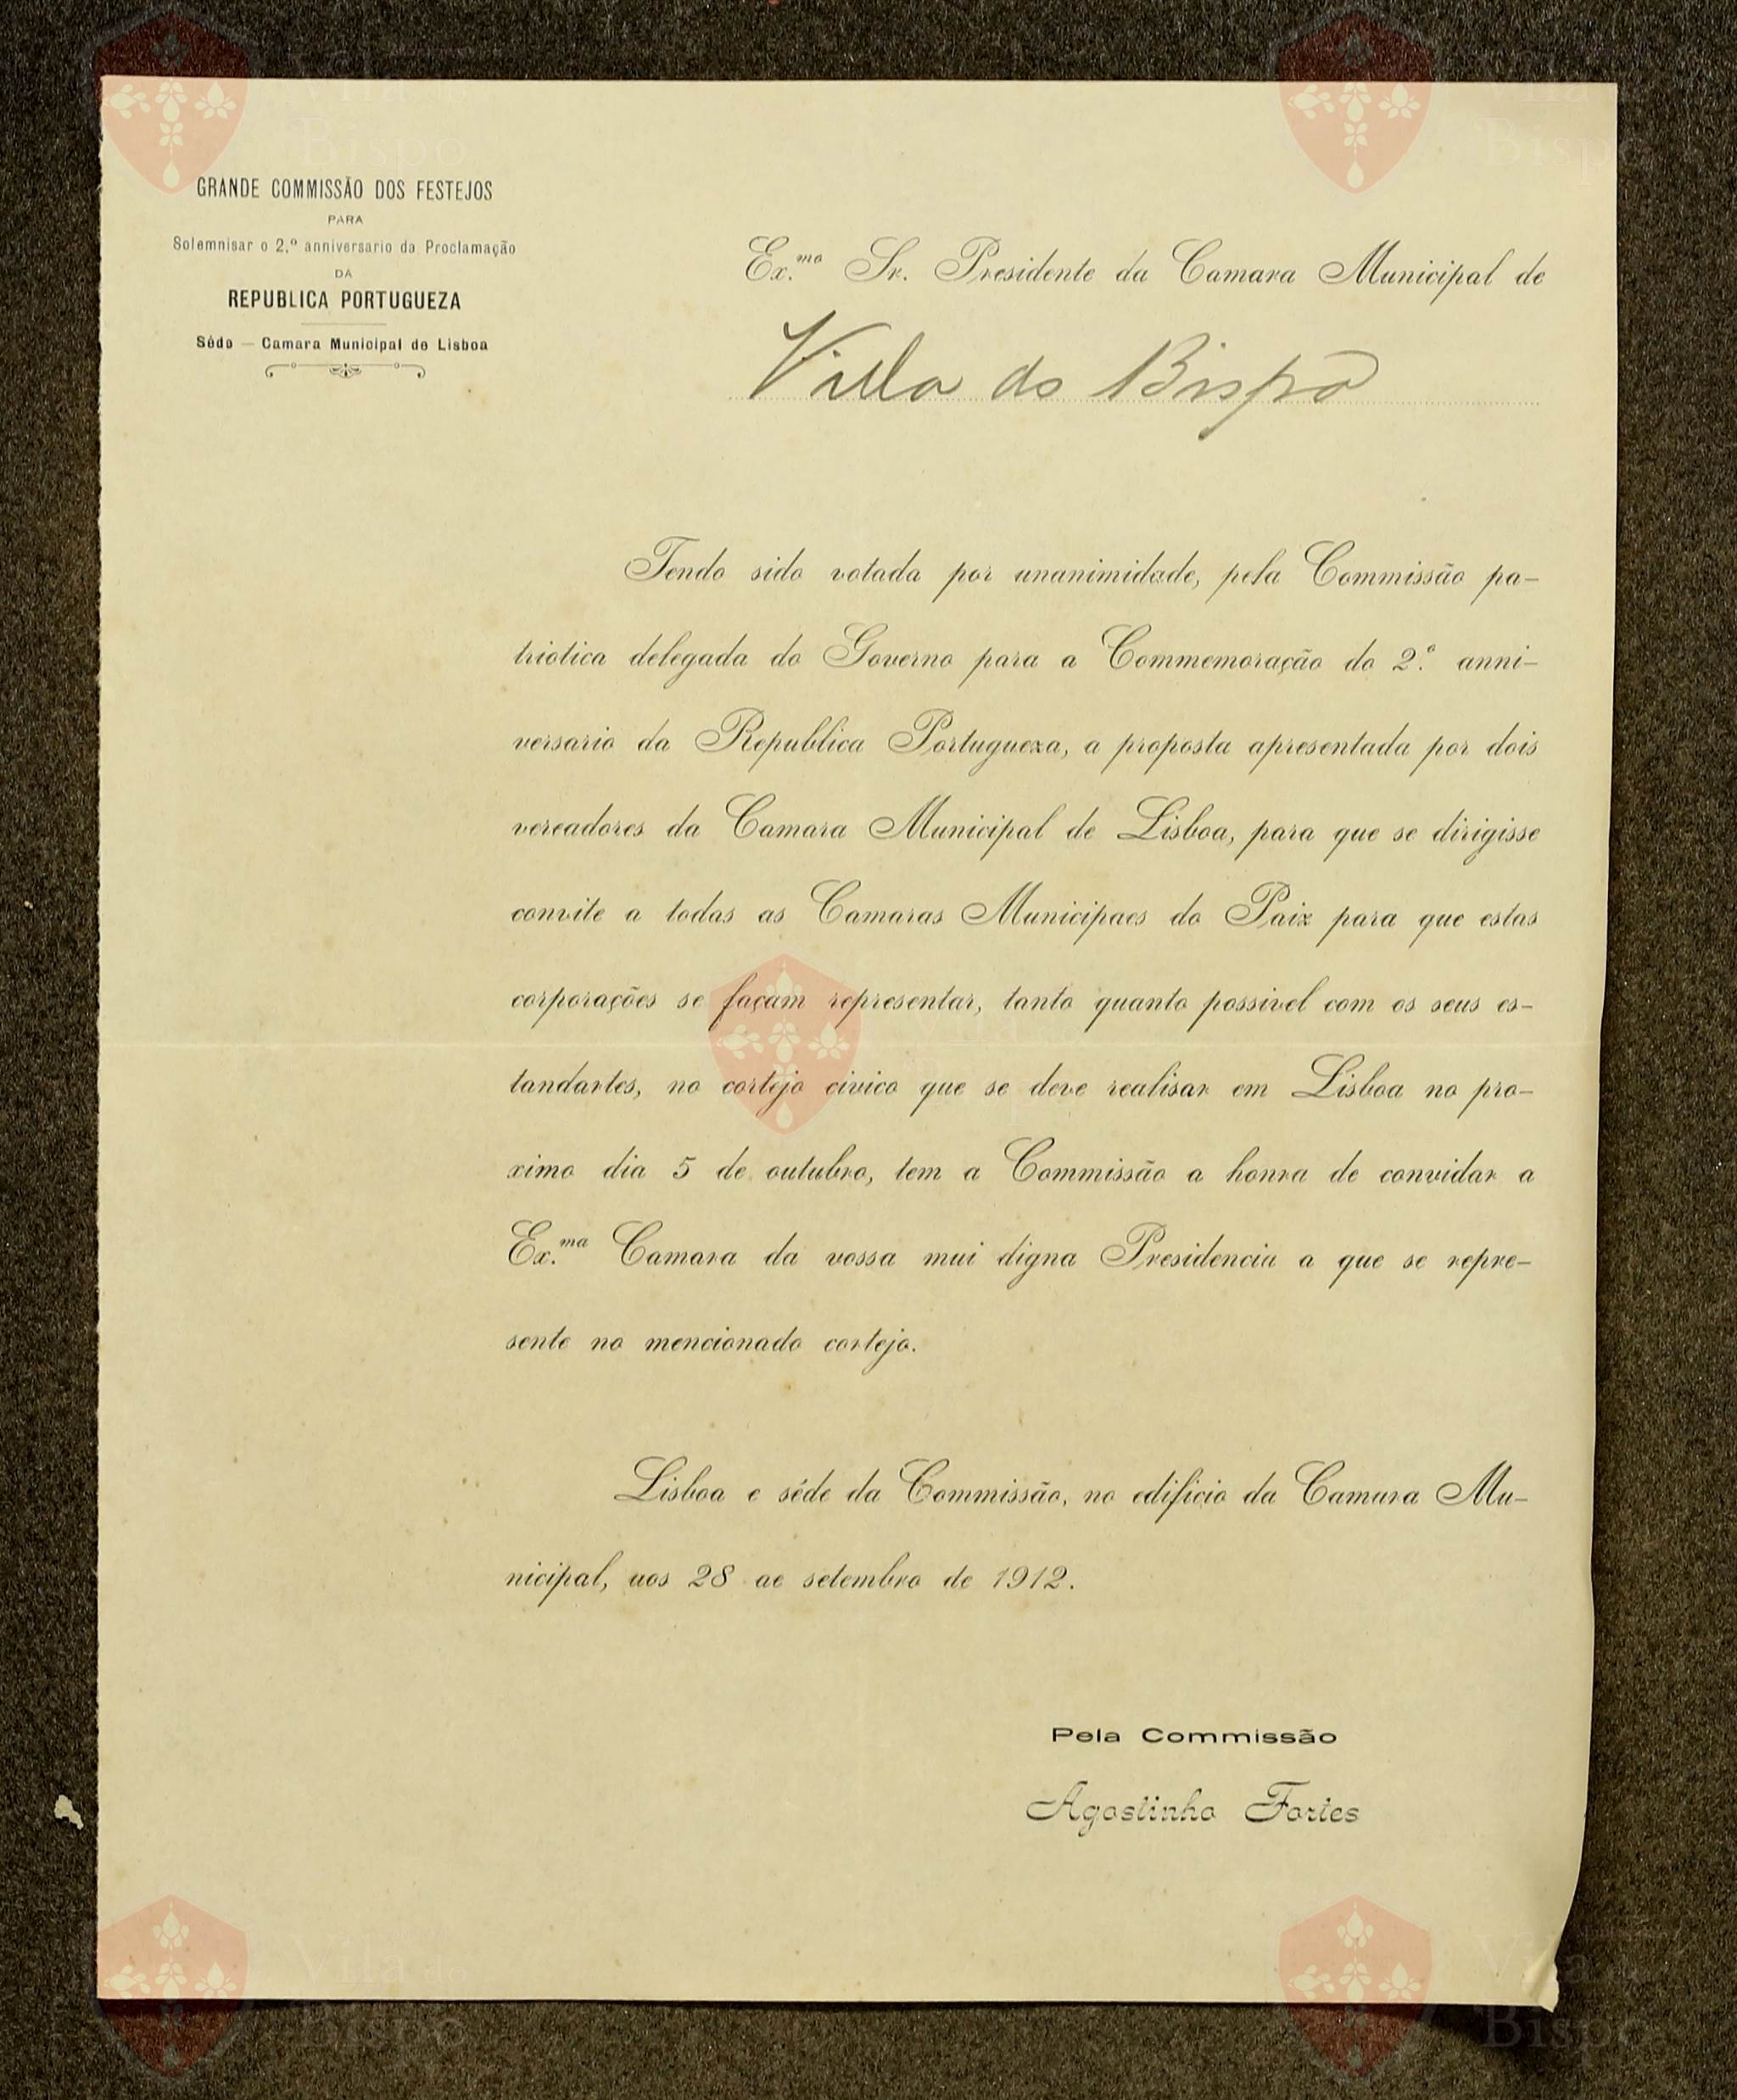 GRANDE COMMISSÃO DOS FESTEJOS
PARA
Solemnisar o 2.º anniversario da Proclamação
DA
REPUBLICA PORTUGUEZA
Séde — Camara Municipal de Lisboa
Ex.mo Sr. Presidente da Camara Municipal de
Villa do Bispo
Tendo sido votada por unanimidade, pela Commissão pa-
triotica delegada do Governo para a Commemoração do 2.º anni-
versario da Republica Portugueza, a proposta apresentada por dois
vereadores da Camara Municipal de Lisboa, para que se dirigisse
convite a todas as Camaras Municipaes do Paiz para que estas
corporações se façam representar, tanto quanto possivel com os seus es-
tandartes, no cortejo civico que se deve realisar em Lisboa no pro-
ximo dia 5 de outubro, tem a Commissão a honra de convidar a
Ex.ma Camara da vossa mui digna Presidencia a que se repre-
sente no mencionado cortejo.
Lisboa e séde da Commissão, no edificio da Camara Mu-
nicipal, aos 28 de setembro de 1912.
Pela Commissão
Agostinho Fortes
Vila do
Bispo
Vila
Bispo
Vila do
Bispo
Vila do
Bispo